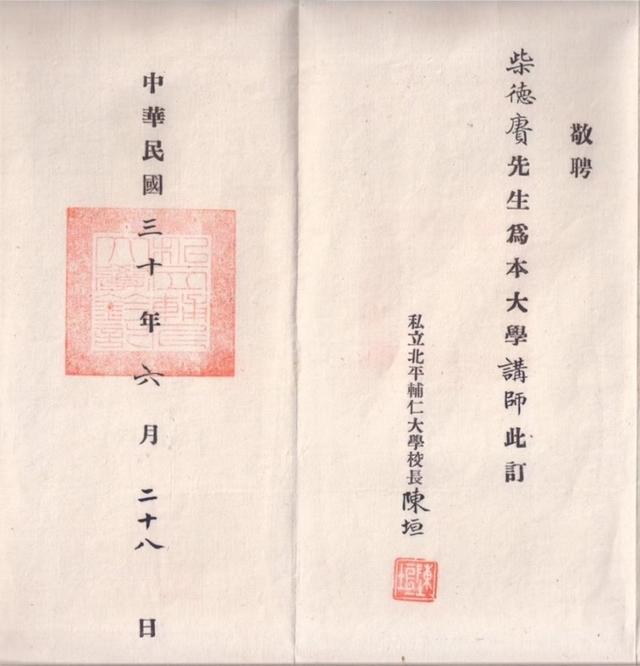 敬聘
柴德賡先生爲本大學講師此訂
私立北平輔仁大學校長陳垣
陳垣
中華民國三十年六月二十八日